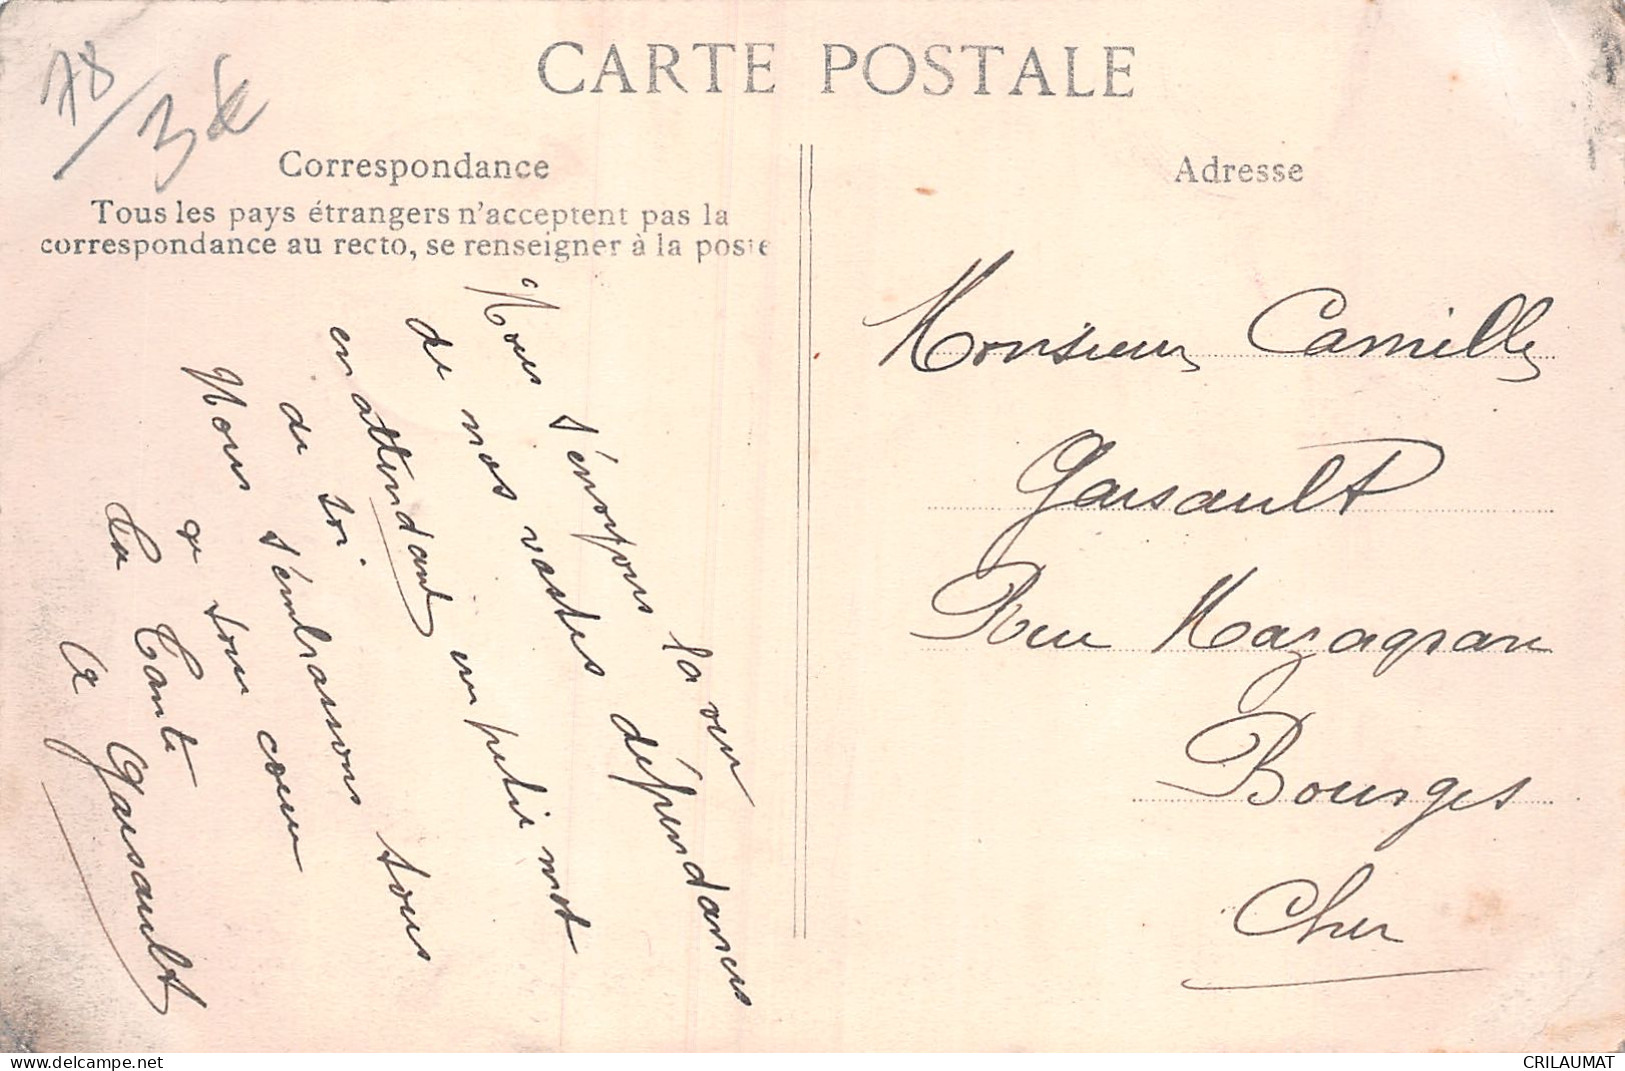 78/3€
CARTE POSTALE
Correspondance
Tous les pays étrangers n'acceptent pas la
correspondance au recto, se renseigner à la poste
Nous t'envoyons la vue
de nos vastes dépendances
en attendant un petit mot
de toi.
Nous t'embrassons tous
de tout coeur
La Tante
A Garsault
Adresse
Monsieur Camille
Garsault
Rue Mazagran
Bourges
Cher
www.delcampe.net
CRILAUMAT